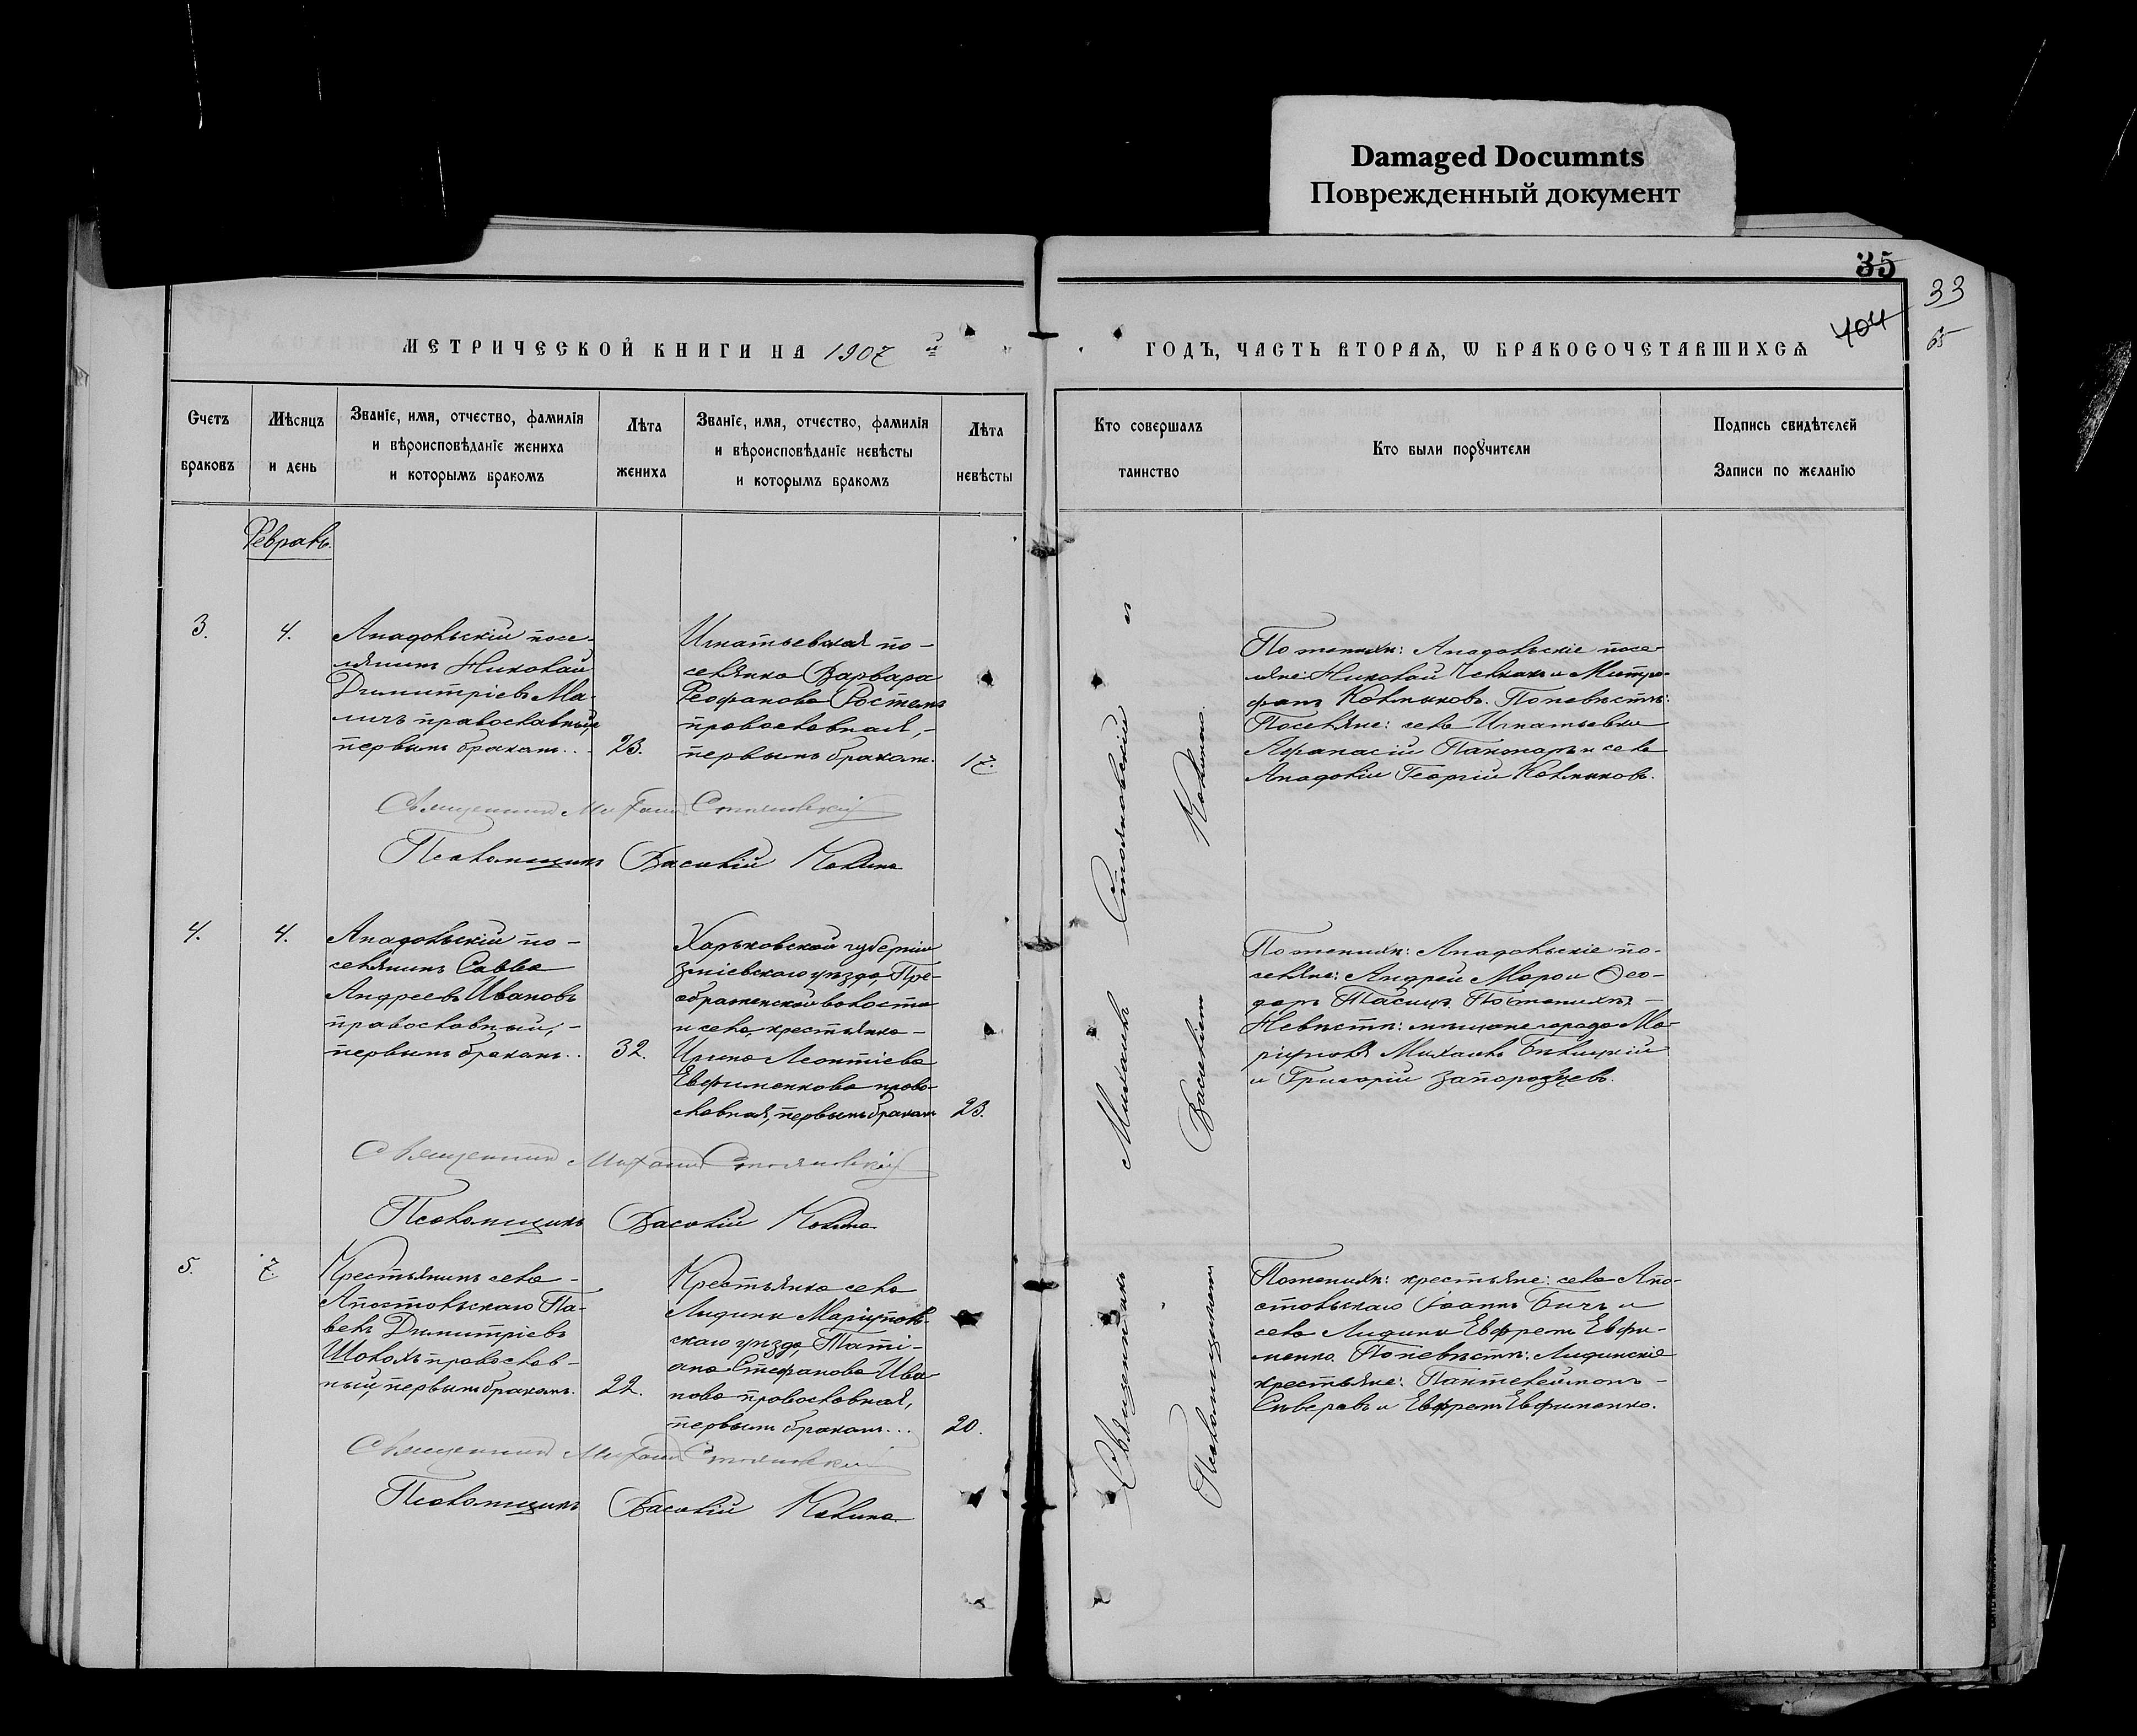 Damaged Documnts
Поврежденный документ
35
33
404
65
МЕТРИЧЕСКОЙ КНИГИ НА 1907 й
ГОДЪ, ЧАСТЬ ВТОРАѦ, Ѡ БРАКОСОЧЕТАВШИХСѦ
Счетъ браковъ
Мѣсяцъ и день
Званіе, имя, отчество, фамилія
и вѣроисповѣданіе жениха
и которымъ бракомъ
Лѣта жениха
Званіе, имя, отчество, фамилія
и вѣроисповѣданіе невѣсты
и которымъ бракомъ
Лѣта невѣсты
Кто совершалъ таинство
Кто были порꙋчители
Подпись свидѣтелей
Записи по желанію
Февраль.
3.
4.
Анадольскій посе-
лянинъ Николай
Димитріевъ Ма-
личъ православный,
первымъ бракомъ..
23.
Игнатьевская по-
селянка Варвара
Феофанова
православная, -
первымъ бракомъ.
17.
Священникъ Михаилъ Стояновскій
Псаломщикъ Василій Калина
По женихѣ: Анадольскіе посе-
ляне: Николай и Митро-
фанъ Калмыковъ. По невѣстѣ:
Поселяне: села Игнатьевки
Афанасій и села
Анадоліи Георгій Калмыковъ.
4.
4.
Анадольскій по-
селянинъ Савва
Андреевъ Ивановъ
православный, -
первымъ бракомъ..
32.
Харьковской губерніи
Зміевскаго уѣзда, Пре-
ображенской волости
и села, крестьянка -
Ирина Леонтіева
Евфименкова право-
славная, первымъ бракомъ
23.
Священникъ Михаилъ Стояновскій
Псаломщикъ Василій Калина
По женихѣ: Анадольскіе по-
селяне: Андрей Мара и Ѳео-
доръ Тасицъ. По женихѣ -
Невѣстѣ: мѣщане города Ма-
ріуполя Михаилъ Бѣлицкій
и Григорій Запорожцевъ.
5.
7
Крестьянинъ села -
Апостольскаго Па-
велъ Димитріевъ
Шолохъ православ-
ный, первымъ бракомъ.
22.
Крестьянка села
Лидина Маріуполь-
скаго уѣзда, Таті-
ана Стефанова Ива-
нова православная,
первымъ бракомъ...
20.
Священникъ Михаилъ Стояновскій
Псаломщикъ Василій Калина
По женихѣ: крестьяне: села Апо-
стольскаго Іоаннъ Бичъ и
села Лидина Евфремъ Евфи-
менко. По невѣстѣ: Лидинскіе
крестьяне: Пантелеймонъ -
Сѣверовъ и Евфремъ Евфименко.
Священникъ Михаилъ Стояновскій и
Псаломщикомъ Василіемъ Калиною.